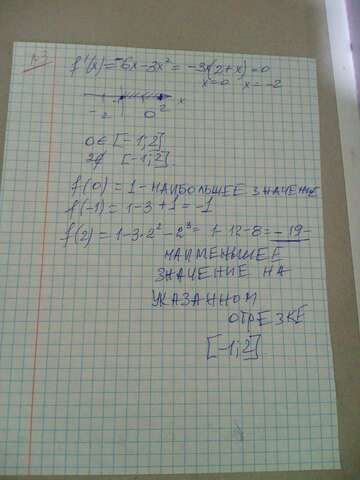 f'(x) = -6x - 3x² = -3x(2+x) = 0
x=0 x=-2
-2 0 2 x
0 ∈ [-1;2]
2∉ [-1;2]
f(0) = 1 - НАИБОЛЬШЕЕ ЗНАЧЕНИЕ
f(-1) = 1-3+1 = -1
f(2) = 1-3·2²-2³ = 1-12-8 = -19-
НАИМЕНЬШЕЕ
ЗНАЧЕНИЕ НА
УКАЗАННОМ
ОТРЕЗКЕ
[-1;2]